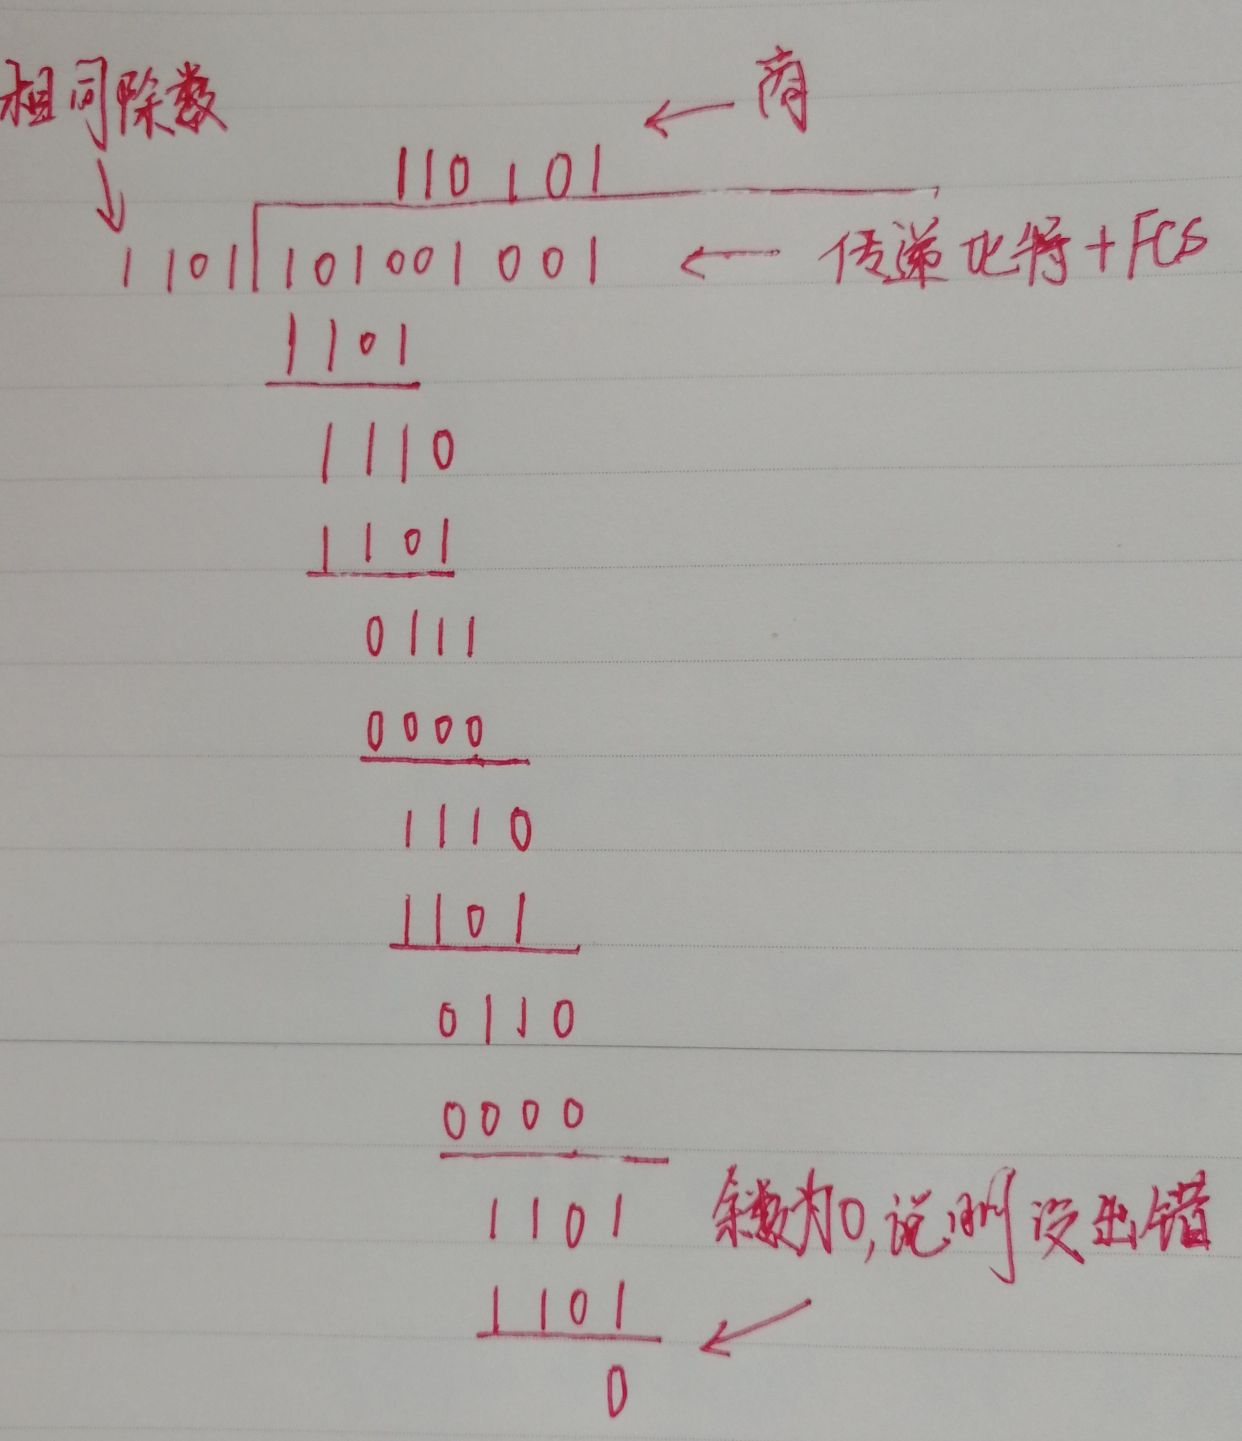 相同除数
← 商
110101
1101 101001001 ← 传递比特+FCS
1101
1110
1101
0111
0000
1110
1101
0110
0000
1101 余数为0,说明没出错
1101
0